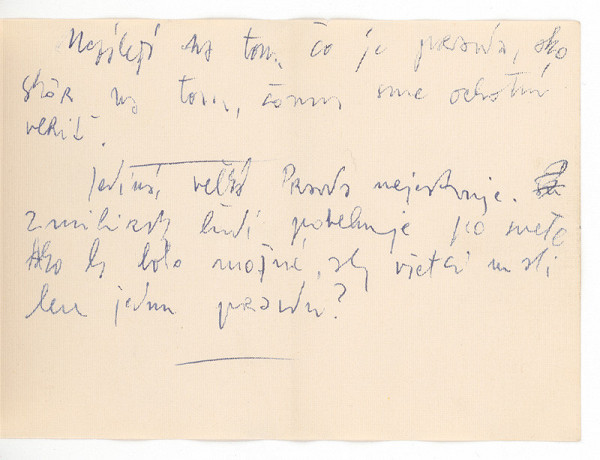 Nezáleží na tom, čo je pravda, ako
skôr na tom, čomu sme ochotní
veriť.
Jediná, veľká Pravda nejestvuje.
ľudí pobehuje po svete
Ako by bolo možné, aby všetci mali
len jednu pravdu?